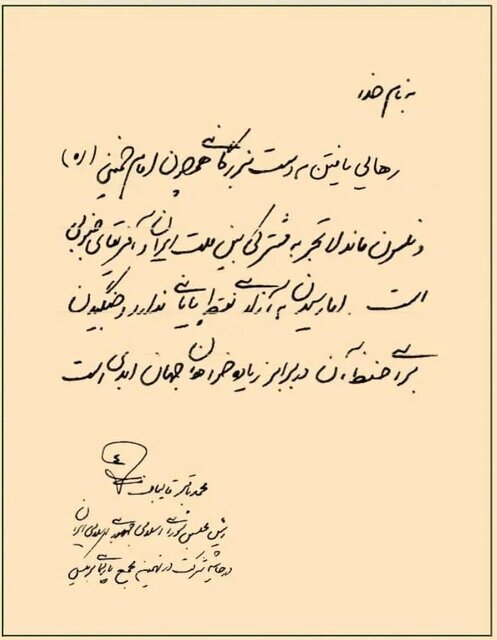 به نام خدا
رهایی یافتن به دست بزرگانی همچون امام خمینی (ره)
و نلسون ماندلا تجربه مشترکی بین ملت ایران و آفریقای جنوبی
است. اما رسیدن به آزادی نقطه پایانی ندارد و جنگیدن
برای حفظ آن در برابر زیاده خواهان جهان ابدی است
محمدباقر قالیباف
رئیس مجلس شورای اسلامی جمهوری اسلامی ایران
در حاشیه شرکت در نهمین مجمع پارلمانی بریکس